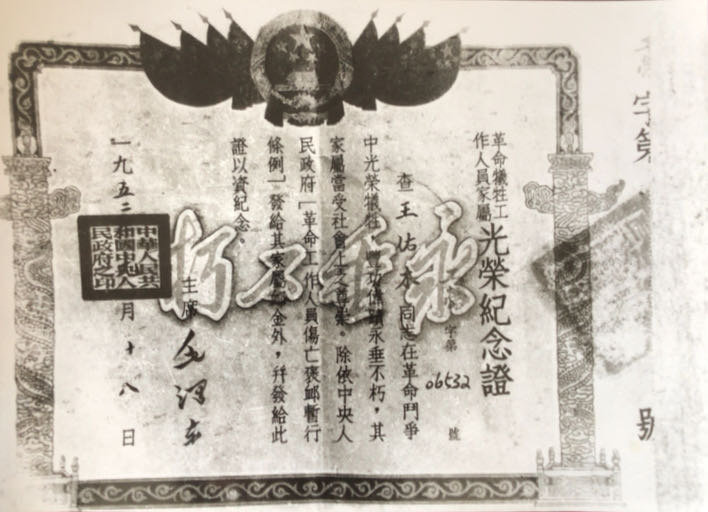 字第 號
革命犧牲工
作人員家屬
光榮紀念證
字第 06532 號
查王佑本同志在革命鬥爭
中光榮犧牲,豐功偉績永垂不朽,其
家屬當受社會上之尊榮。除依中央人
民政府「革命工作人員傷亡褒卹暫行
條例」發給其家屬卹金外,幷發給此
證以資紀念。
永垂不朽
主席 毛澤東
一九五二 月十八日
中華人民共
和國中央人
民政府之印